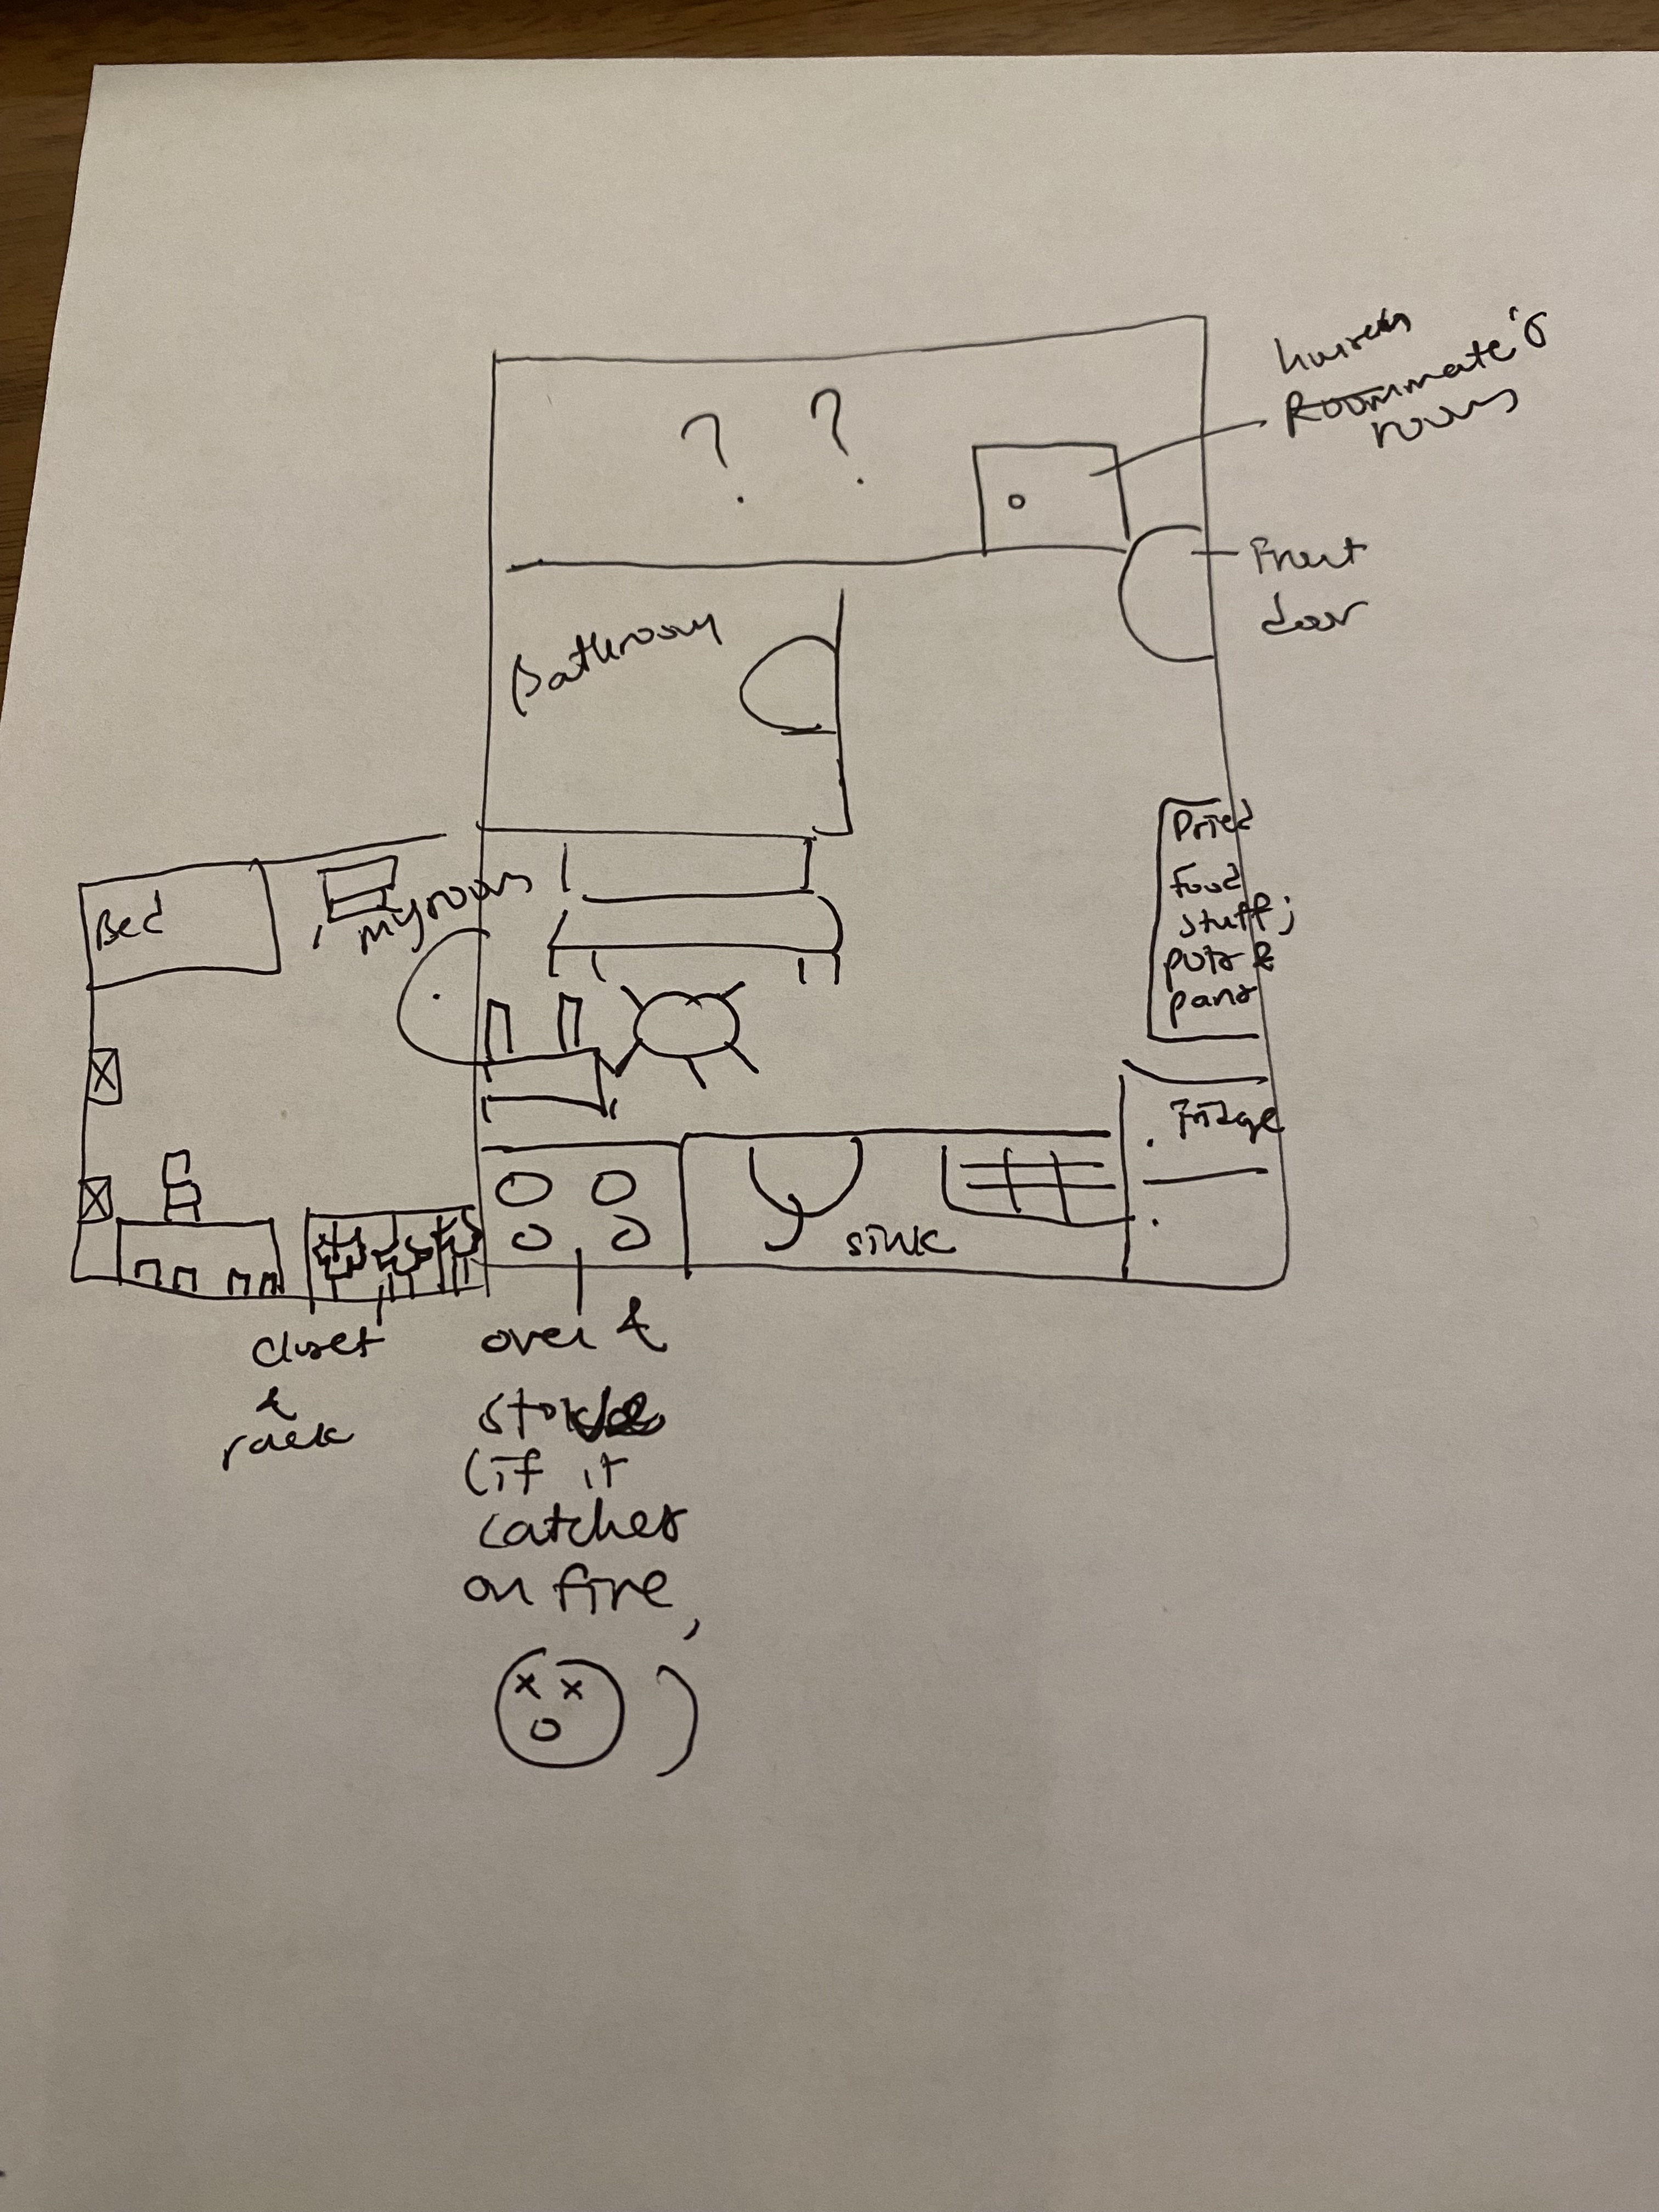 ? ?
Roommate's
room
Front
door
Bathroom
Dried
food
stuff;
pots &
pans
Bed
my room
Fridge
sink
closet
&
rack
oven &
stove
(if it
catches
on fire,
)